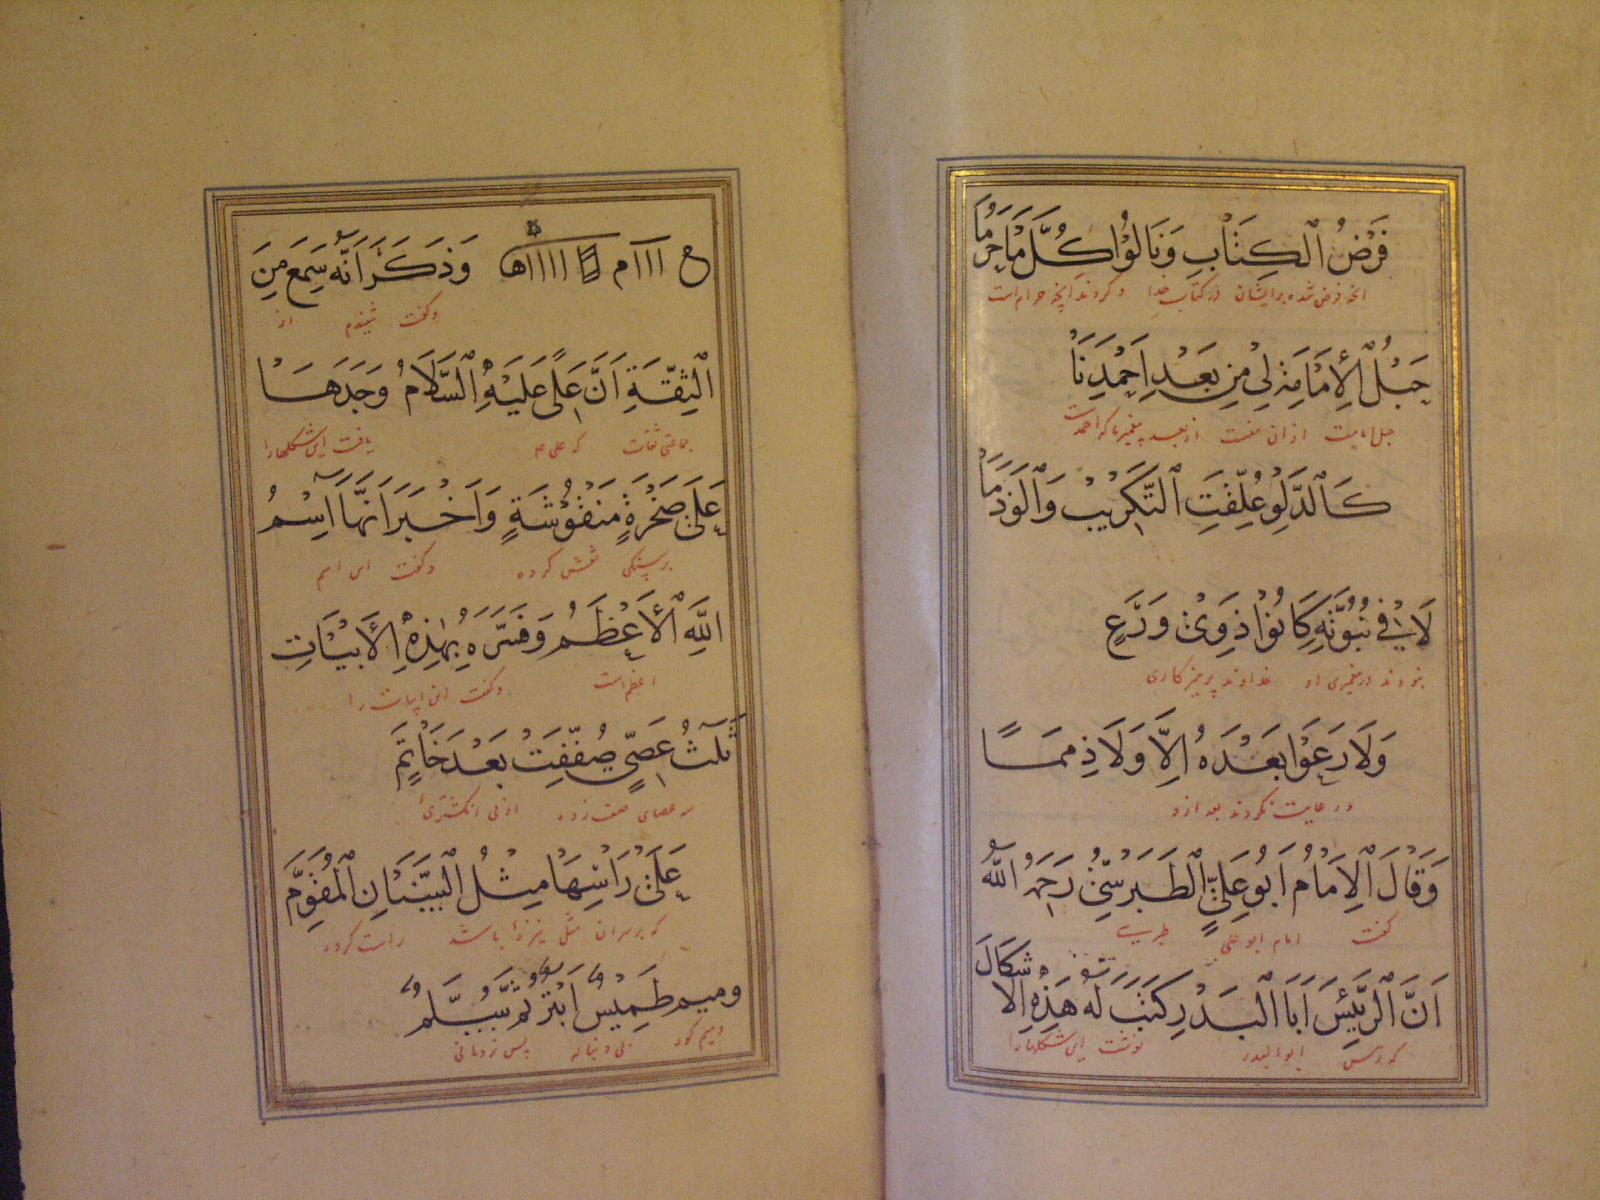 فَرْضُ ٱلْكِتَابِ وَنَالُوْا كُلَّ مَا حَرُمَا
انچه فرض شده برایشان در کتاب خدا و کردند آنچه حرام است
حَبْلُ ٱلْإِمَامَةِ لِيْ مِنْ بَعْدِ اَحْمَدِنَا
از بعد پیغمبر ما که احمد است
كَٱلدَّلْوِ عُلِّقَتِ ٱلتَّكْرِيْبَ وَٱلْوَذَمَا
لَا فِيْ نُبُوَّتِهِ كَانُوْا ذَوِيْ وَرَعٍ
نبودند در پیغمبری او خداوند پرهیزکاری
وَلَا رَعَوْا بَعْدَهُ اِلًّا وَلَا ذِمَمًا
و رعایت نکردند بعد ازو
وَقَالَ ٱلْاِمَامُ اَبُو عَلِيٍّ ٱلطَّبَرْسِيُّ رَحِمَهُ اللّٰهُ
گفت امام ابو علی طبرسی
اَنَّ ٱلرَّئِيْسَ اَبَا ٱلْبَدْرِ كَتَبَ لَهُ هٰذِهِ ٱلْاَشْكَالَ
که رئیس ابو البدر نوشت این شکلها را
وَذَكَرَ اَنَّهُ سَمِعَ مِنَ
و گفت شنیدم از
ٱلثِّقَةِ اَنَّ عَلِيًّا عَلَيْهِ ٱلسَّلَامُ وَجَدَهَا
جماعتی ثقات که علی ع یافت این شکلها را
عَلٰى صَخْرَةٍ مَنْقُوْشَةٍ وَاَخْبَرَ اَنَّهَا ٱسْمُ
بر سنگی نقش کرده و گفت این اسم
اللّٰهِ ٱلْاَعْظَمُ وَفَسَّرَهُ بِهٰذِهِ ٱلْاَبْيَاتِ
اعظم است و گفت این ابیات را
ثَلٰثُ عِصِيٍّ صُفِّفَتْ بَعْدَ خَاتَمٍ
سه عصای صف زده از پی انگشتری
عَلٰى رَاْسِهَا مِثْلُ ٱلسِّنَانِ ٱلْمُقَوَّمِ
که بر سران مثل نیزه باشد راست کرده
وميم طَمِيْسٌ اَبْتَرٌ ثُمَّ سُلَّمٌ
و میم کور بی دنباله پس نردبانی